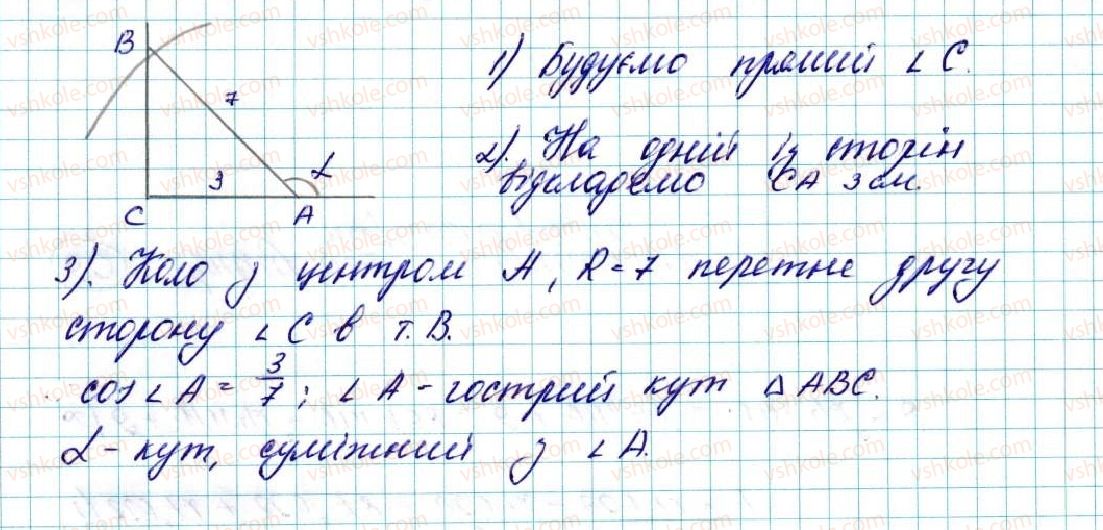 B
7
3
α
C
A
1) Будуємо прямий ∠ C.
2). На одній із сторін
відкладаємо CA 3 см.
3). Коло з центром A, R = 7 перетне другу
сторону ∠ C в т. B.
cos ∠ A = 3/7; ∠ A - гострий кут △ ABC.
α - кут, суміжний з ∠ A.
vshkole.com